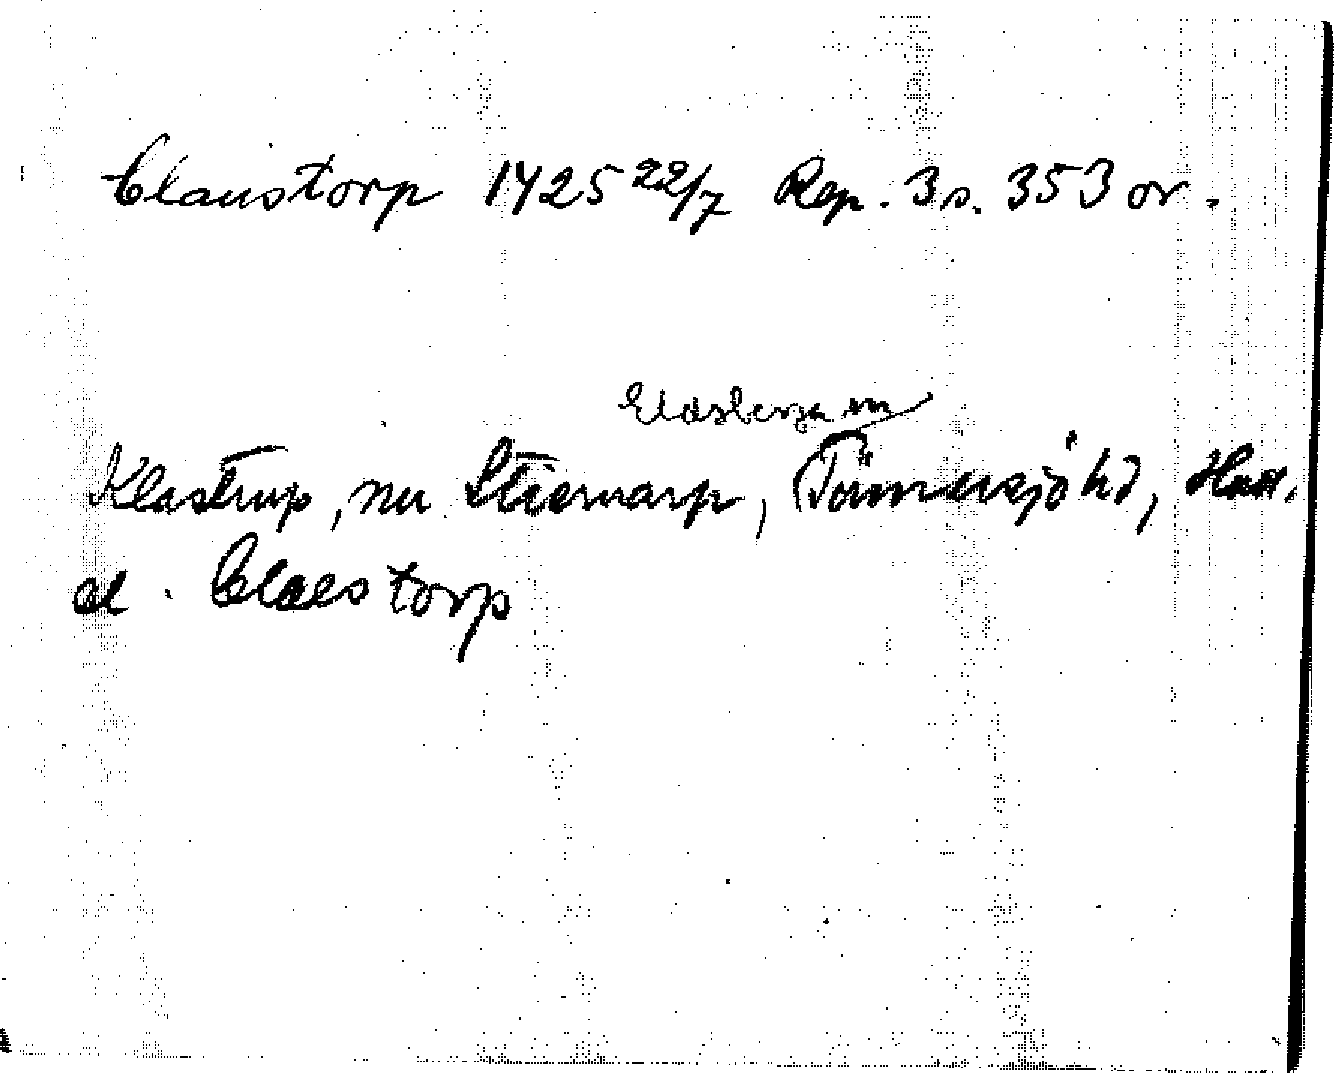 Claustorp 1425 22/7 Rep. 3 s. 353 or.
Eldsberga sn
Klastrup, nu Stiernarp, Tönnersjö hd, Hall.
el. Claestorp